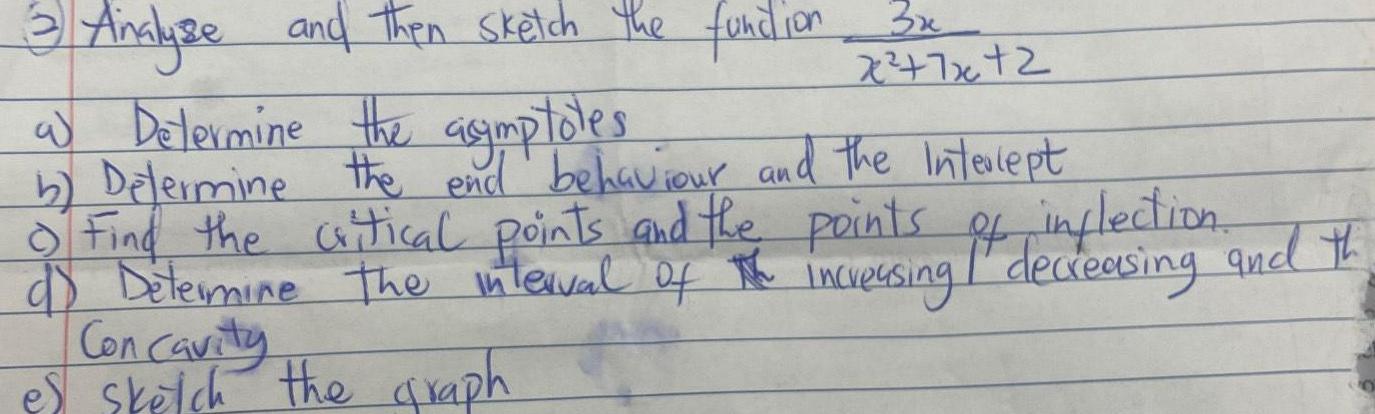 ③ Analyze and then sketch the function 3x / x²+7x+2
a) Determine the asymptotes
b) Determine the end behaviour and the Intercept
c) Find the critical points and the points of inflection.
d) Determine the interval of increasing / decreasing and th
Concavity
e) sketch the graph